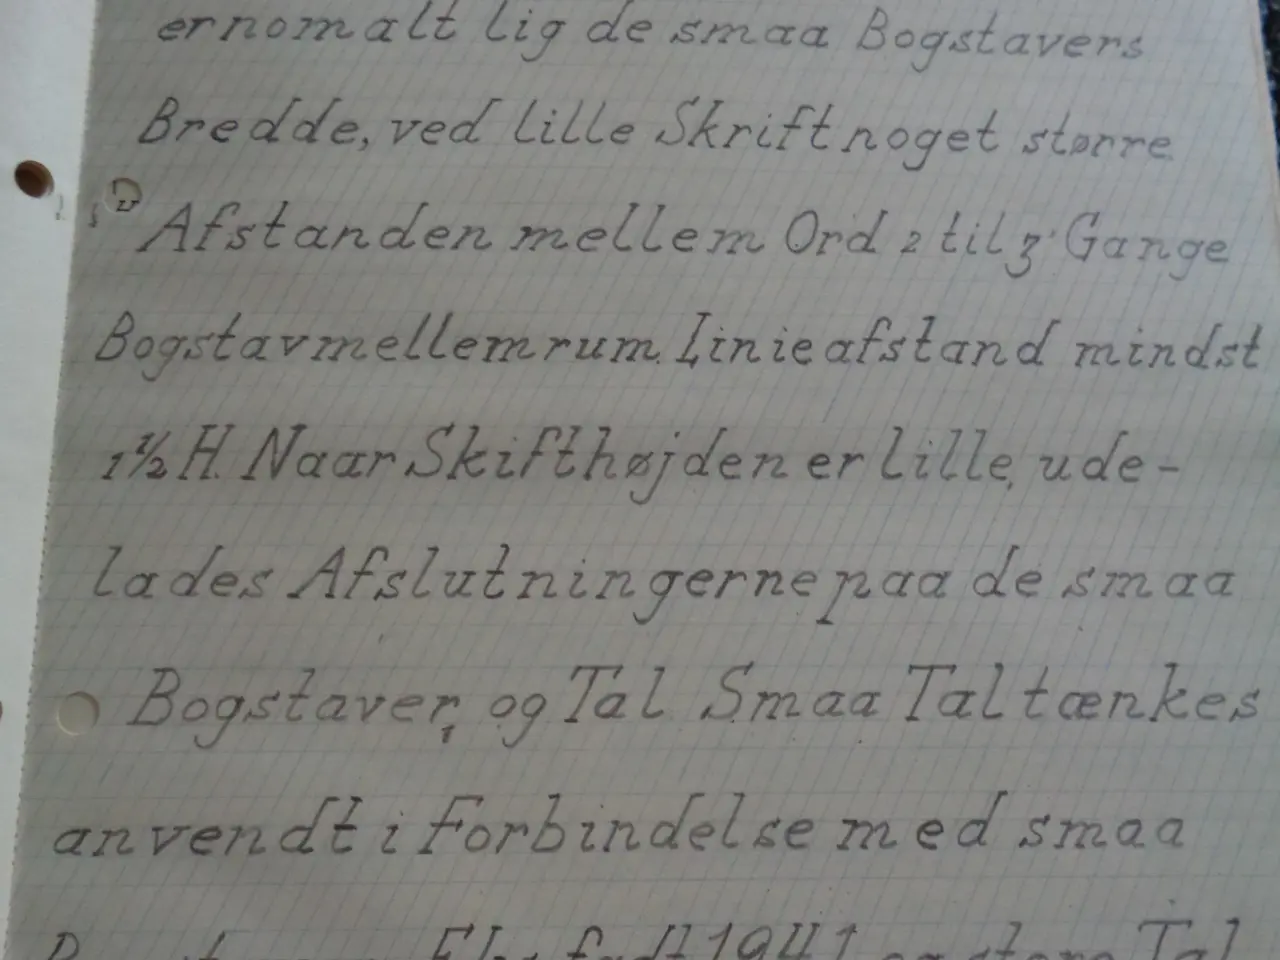 er nomalt lig de smaa Bogstavers
Bredde, ved lille Skrift noget større
Afstanden mellem Ord 2 til 3 Gange
Bogstavmellemrum. Linieafstand mindst
1½ H. Naar Skifthøjden er lille, ude-
lades Afslutningerne paa de smaa
Bogstaver, og Tal. Smaa Tal tænkes
anvendt i Forbindelse med smaa
1941 og store Tal